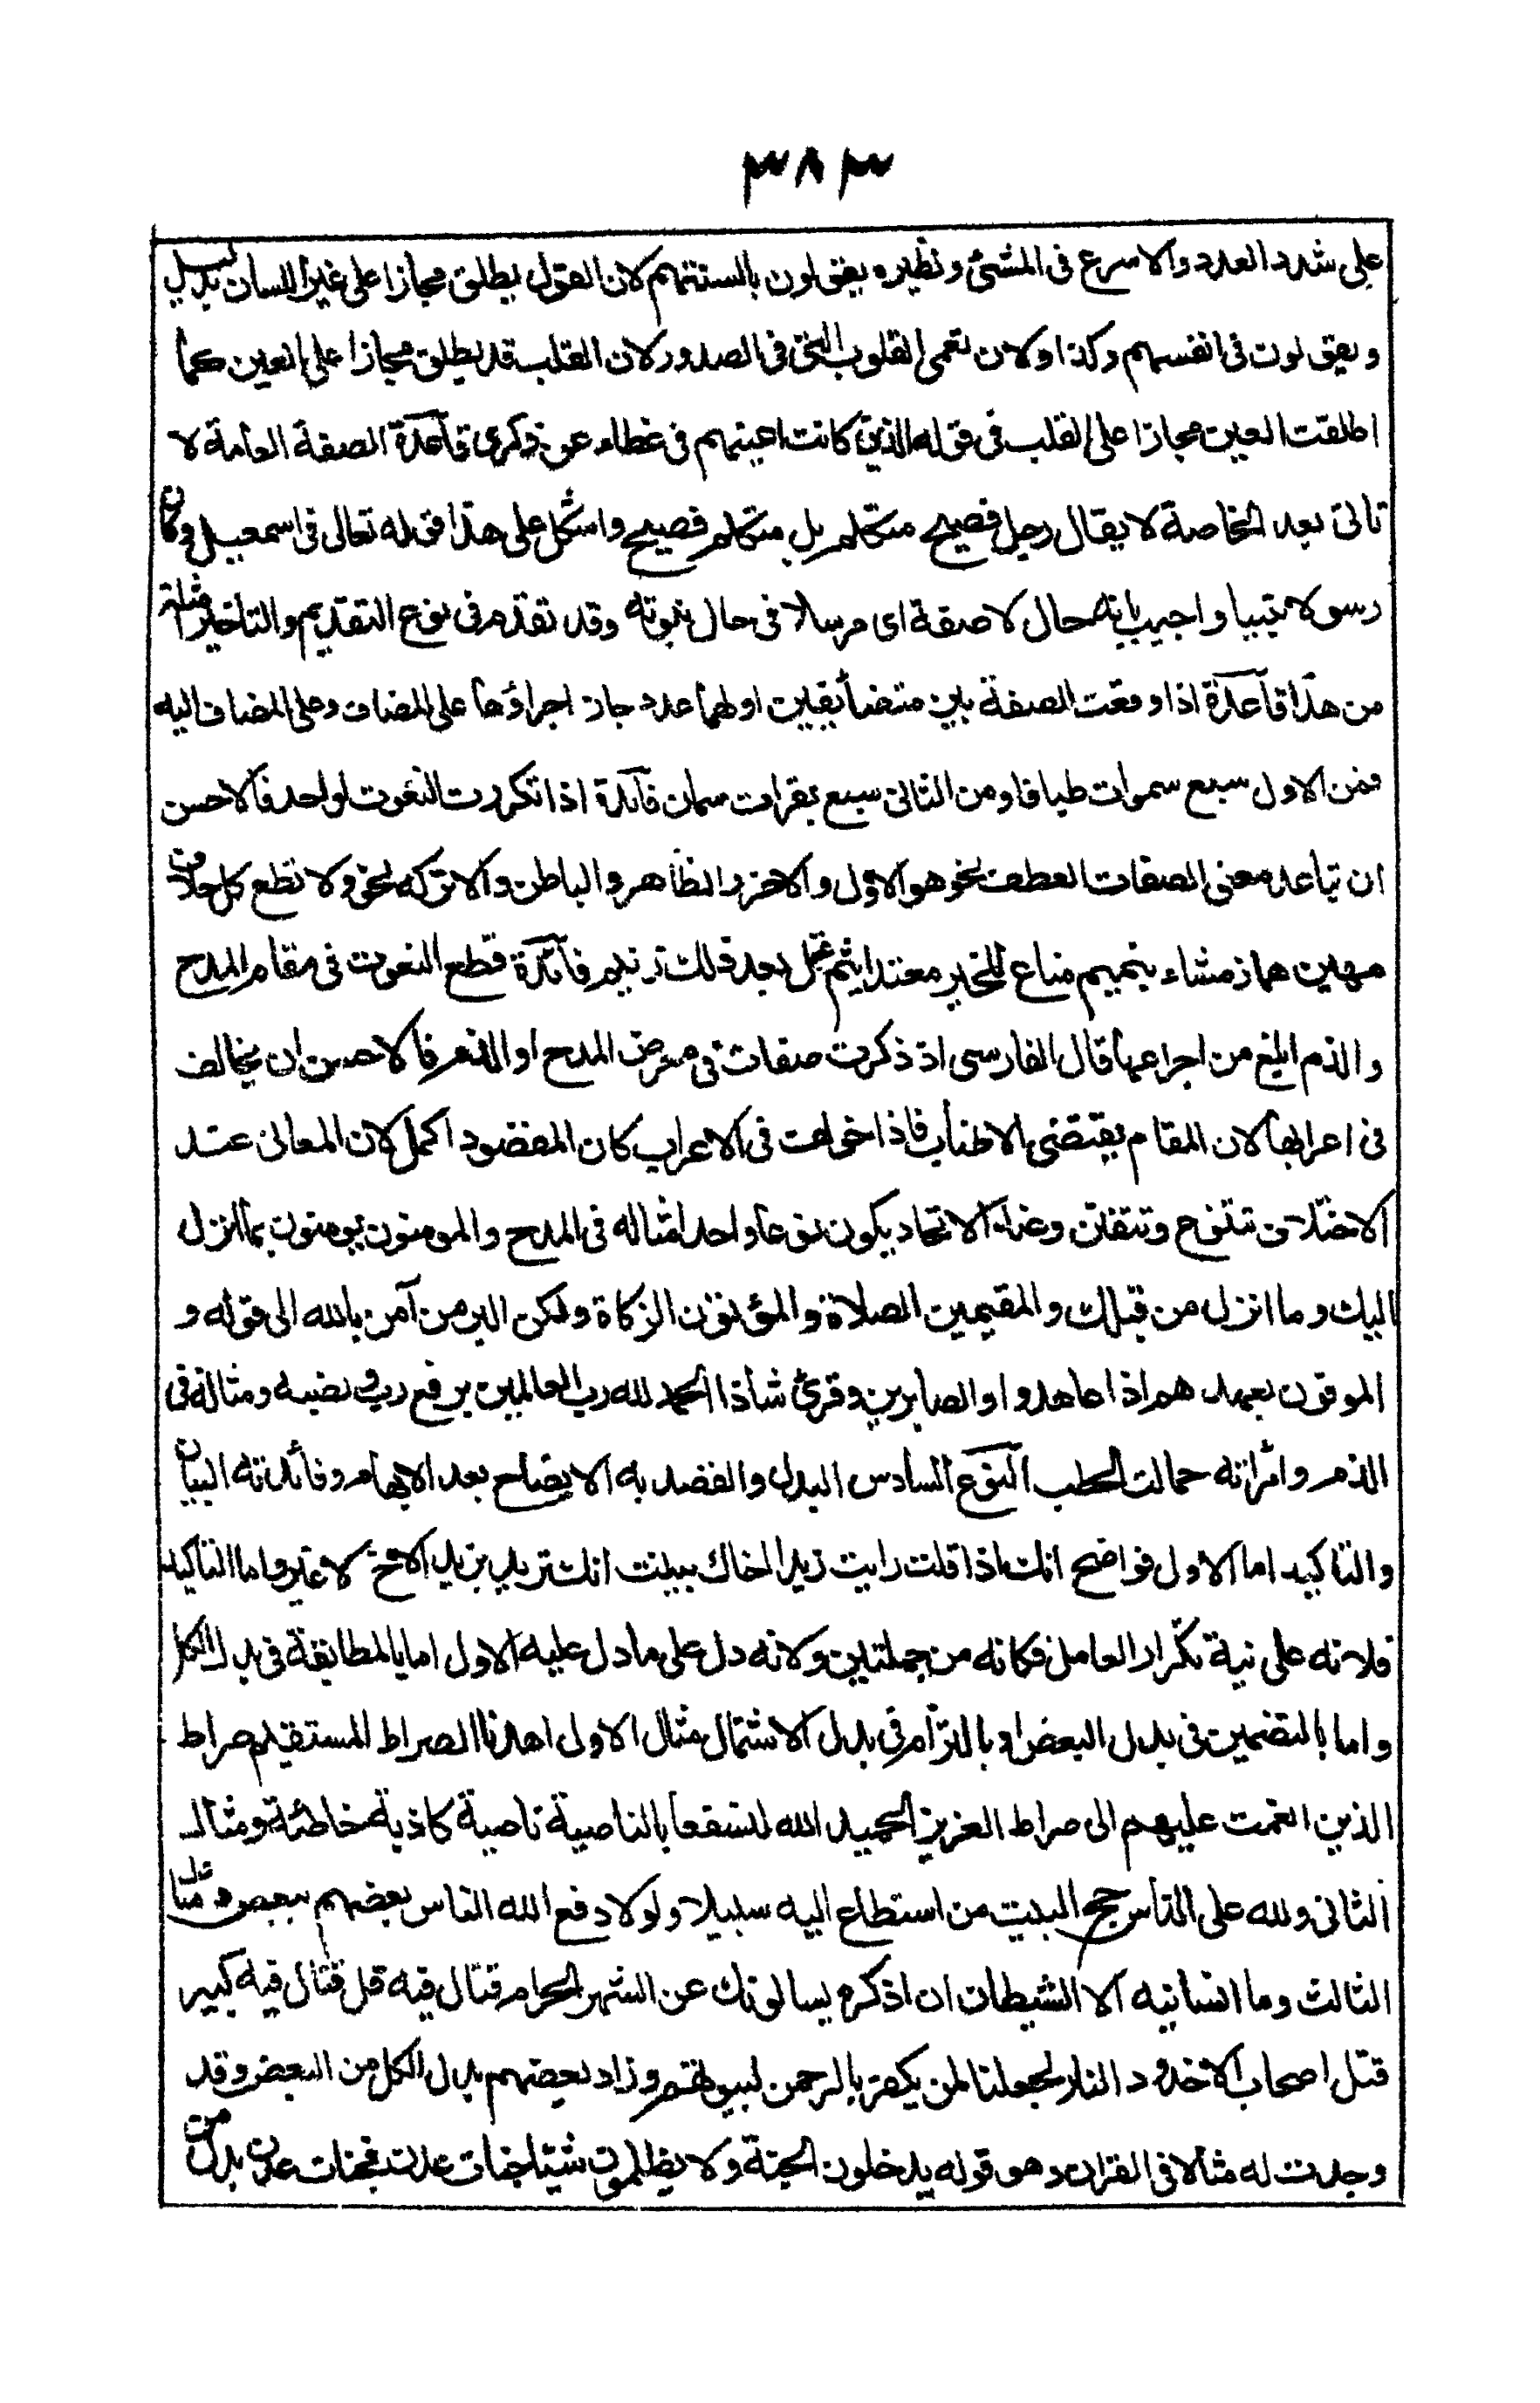 ٣٨٣
على شدد العدد والاسرع فى المشئ ونظيره يقولون بالسنتهم لان القول يطلق مجازا على غير اللسان بدليل
ويقولون فى انفسهم وكذا ولكن تعمى القلوب التى فى الصدور لان القلب قد يطلق مجازا على العين كما
اطلقت العين مجازا على القلب فى قوله الذين كانت اعينهم فى غطاء عن ذكرى قاعدة الصفة العامة لا
تاتى بعد الخاصة لا يقال رجل فصيح متكلم بل متكلم فصيح واشكل على هذا قوله تعالى فى اسمعيل وكان
رسولا نبيا واجيب بانه حال لا صفة اى مرسلا فى حال نبوته وقد تقدم فى نوع التقديم والتاخير امثلة
من هذا قاعدة اذا وقعت الصفة بين متضايفين اولهما عدد جاز اجراؤها على المضاف وعلى المضاف اليه
فمن الاول سبع سموات طباقا ومن الثانى سبع بقرات سمان فآئدة اذا تكررت النعوت لواحد فالاحسن
ان تباعد معنى الصفات العطف نحو هو الاول والاخر والظاهر والباطن والا تركه نحو ولا تطع كل حلاف
مهين هماز مشاء بنميم مناع للخير معتد اثيم عتل بعد ذلك زنيم فآئدة قطع النعوت فى مقام المدح
والذم ابلغ من اجراءها قال الفارسى اذ ذكرت صفات فى معرض المدح او الذم فالاحسن ان يخالف
فى اعرابها لان المقام يقتضى الاطناب فاذا خولف فى الاعراب كان المقصود اكمل لان المعانى عند
الاختلاف تتنوع وتتفنن وعند الاتحاد يكون نوعا واحدا مثاله فى المدح والمومنون يومنون بما انزل
اليك وما انزل من قبلك والمقيمين الصلاة والمؤتون الزكاة ولكن البر من آمن بالله الى قوله و
الموفون بعهدهم اذا عاهدوا والصابرين وقرئ شاذا الحمد لله رب العالمين برفع رب ونصبه ومثاله فى
الذم وامراته حمالت الحطب النوع السادس البدل والقصد به الايضاح بعد الابهام وفائدته البيان
والتاكيد اما الاول فواضح انك اذا قلت رايت زيدا اخاك بينت انك تريد بزيد الاخ لا غير واما التاكيد
فلانه على نية تكرار العامل فكانه من جملتين ولانه دل على ما دل عليه الاول اما بالمطابقة فى بدل الكل
واما بالتضمين فى بدل البعض او بالتزام فى بدل الاشتمال مثال الاول اهدنا الصراط المستقيم صراط
الذين انعمت عليهم الى صراط العزيز الحميد الله لنسفعا بالناصية ناصية كاذبة خاطئة ومثال
الثانى ولله على الناس حج البيت من استطاع اليه سبيلا ولولا دفع الله الناس بعضهم ببعض ومثال
الثالث وما انسانيه الا الشيطان ان اذكره يسالونك عن الشهر الحرام قتال فيه قل قتال فيه كبير
قتل اصحاب الاخدود النار لجعلنا لمن يكفر بالرحمن لبيوتهم وزاد بعضهم بدل الكل من البعض وقد
وجدت له مثالا فى القران وهو قوله يدخلون الجنة ولا يظلمون شيئا جنات عدن فجنات عدن بدل من